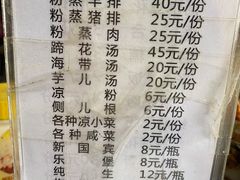 粉蒸羊排 40元/份
粉蒸猪排 25元/份
粉蒸肉 25元/份
蹄花汤 45元/份
海带汤 20元/份
芋儿汤 20元/份
凉粉 6元/份
侧儿根 6元/份
各种凉小菜 2元/份
各种咸菜 2元/份
新国宾 8元/瓶
乐堡 8元/瓶
纯生 12元/瓶